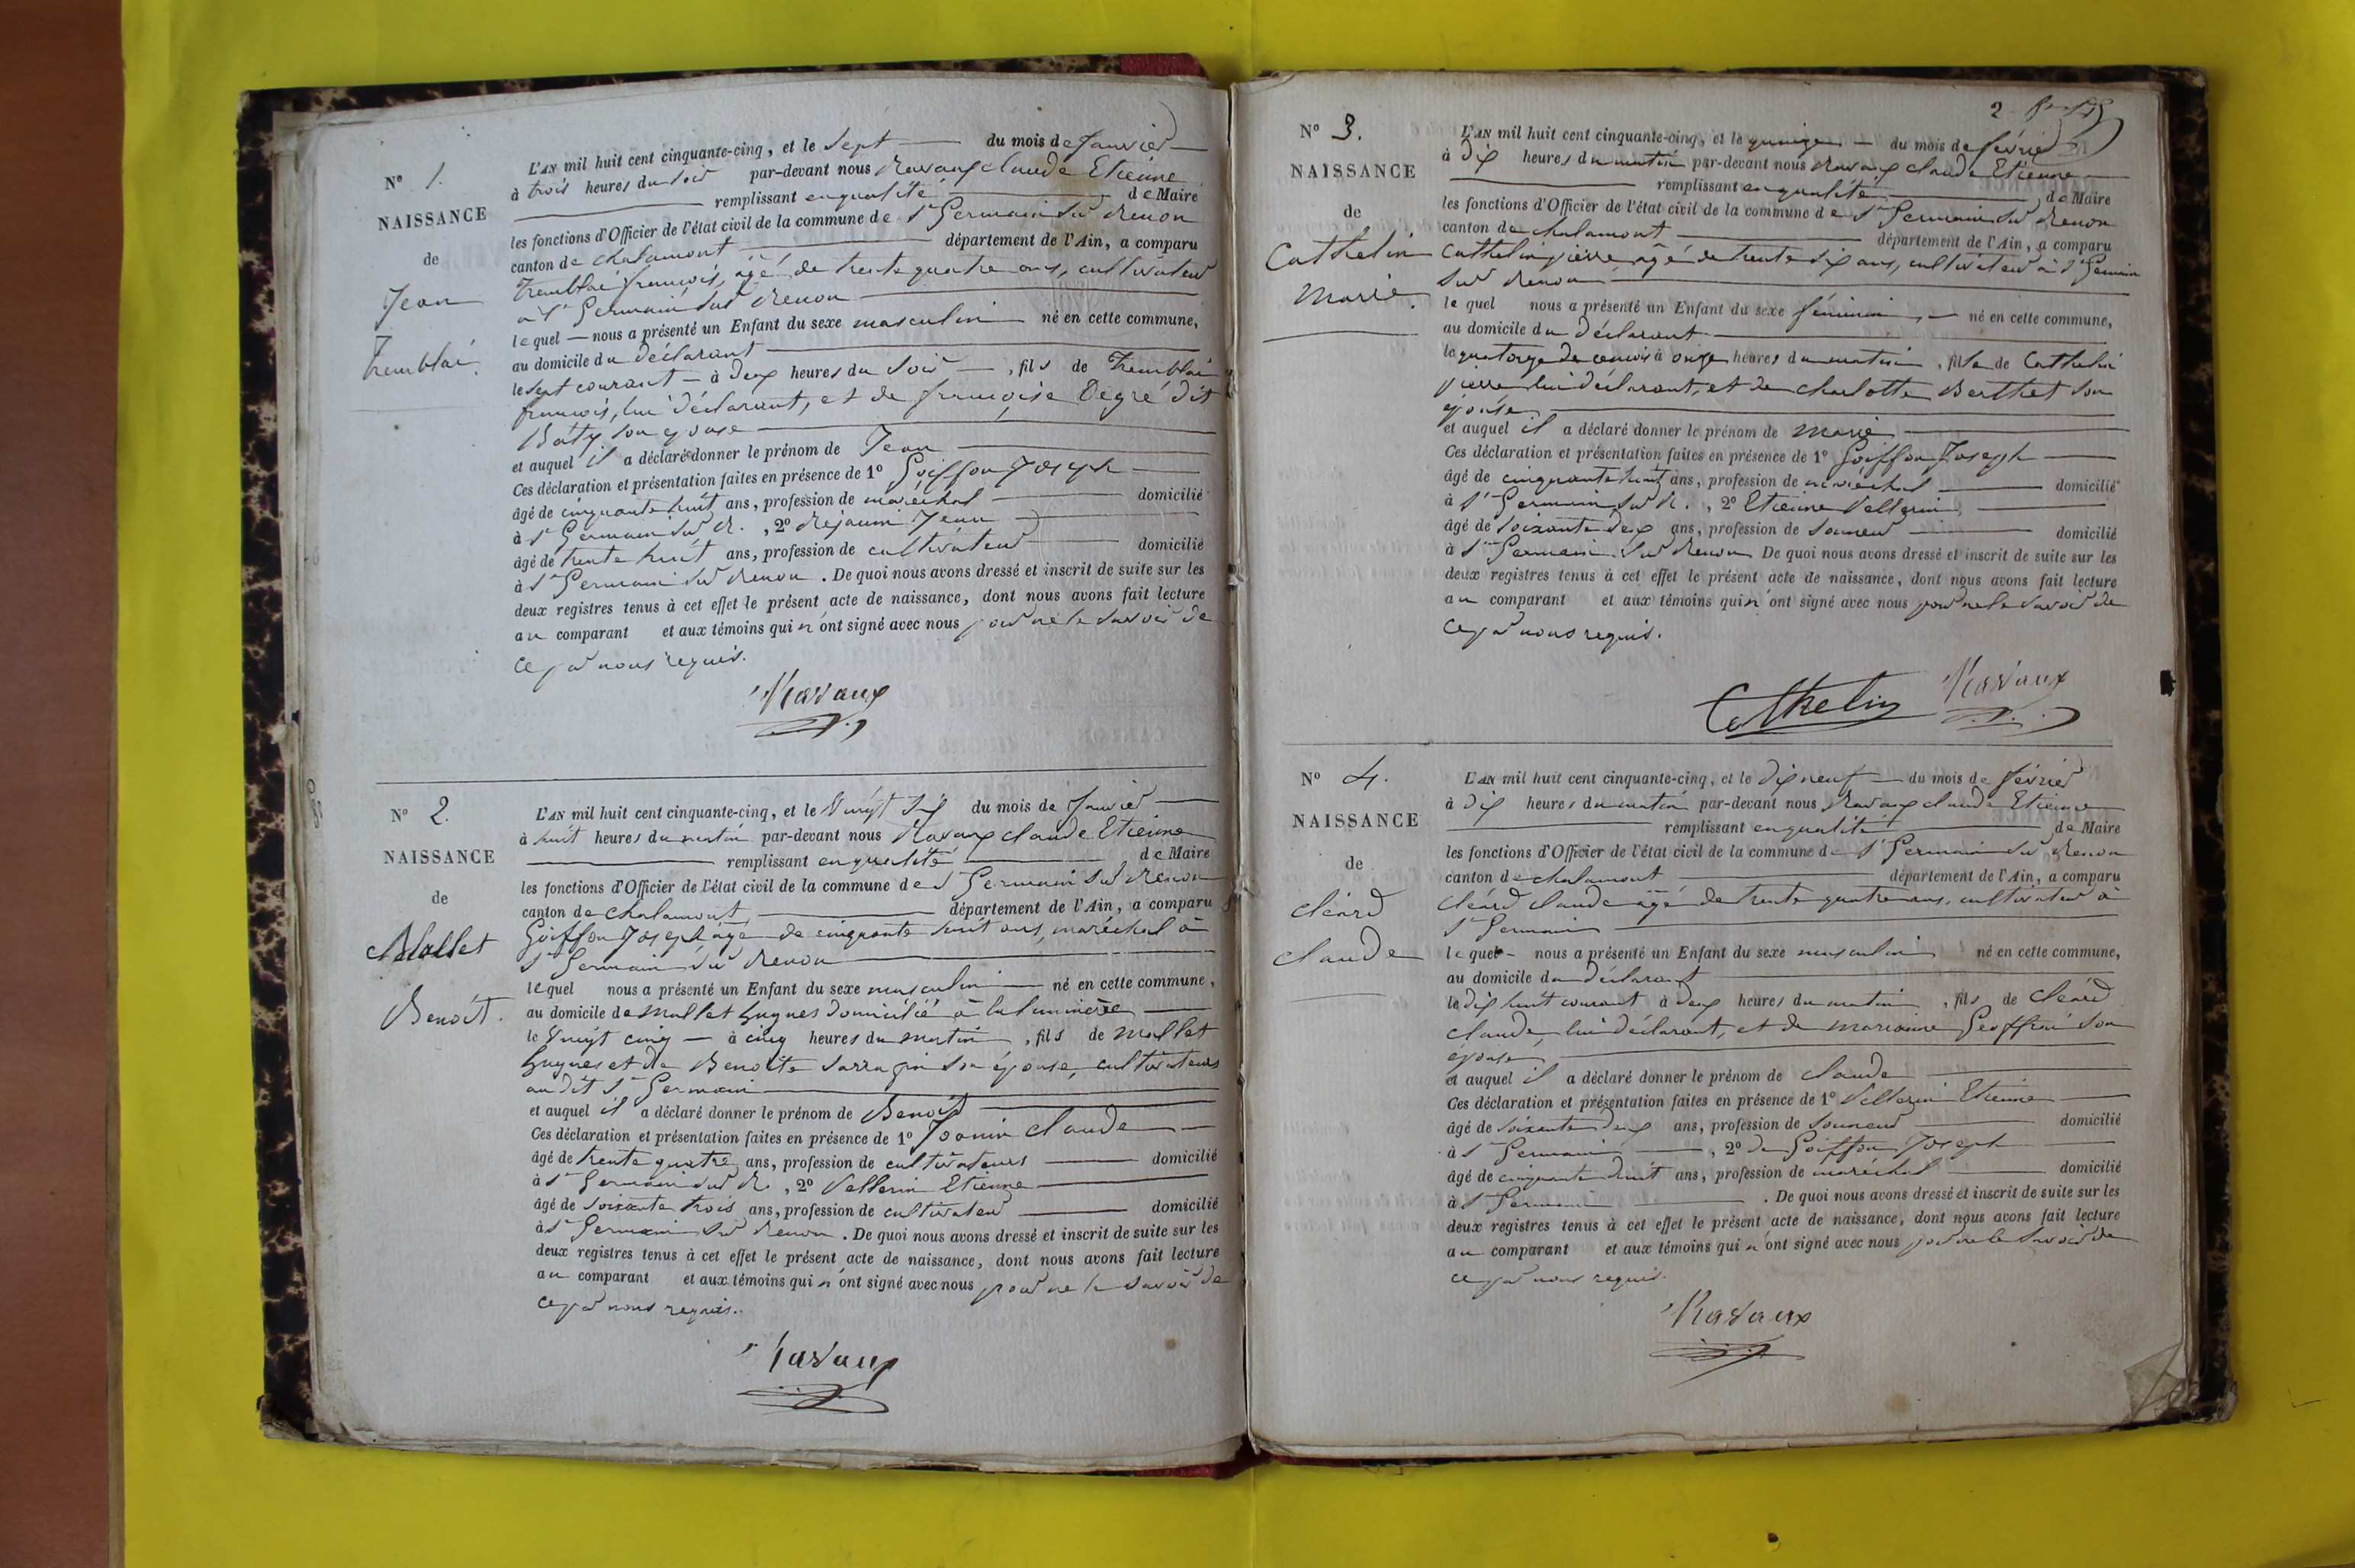 N° 1.
NAISSANCE
de
Jean
Tremblai.
L'AN mil huit cent cinquante-cinq, et le Sept du mois de Janvier
à trois heures du soir par-devant nous Ravaux claude Etienne
remplissant en qualité de Maire
les fonctions d'Officier de l'état civil de la commune de St Germain sur Renon
canton de chalamont département de l'Ain, a comparu
Tremblai françois, âgé de trente quatre ans, cultivateur
à St Germain sur Renon
le quel nous a présenté un Enfant du sexe masculin né en cette commune,
au domicile du déclarant
le sept courant à deux heures du soir, fils de Tremblai
françois, lui déclarant, et de françoise Degré dit
Baty son epouse
et auquel il a déclaré donner le prénom de Jean
Ces déclaration et présentation faites en présence de 1° Goiffon Joseph
âgé de cinquante huit ans, profession de maréchal domicilié
à St Germain sur R., 2° Rejauni Jean
âgé de trente huit ans, profession de cultivateur domicilié
à St Germain sur Renon. De quoi nous avons dressé et inscrit de suite sur les
deux registres tenus à cet effet le présent acte de naissance, dont nous avons fait lecture
au comparant et aux témoins qui n'ont signé avec nous pour ne le savoir de
ce par nous requis.
Ravaux
N° 2.
NAISSANCE
de
Mallet
Benoît.
L'AN mil huit cent cinquante-cinq, et le Vingt six du mois de Janvier
à huit heures du matin par-devant nous Ravaux claude Etienne
remplissant en qualité de Maire
les fonctions d'Officier de l'état civil de la commune de St Germain sur Renon
canton de chalamont département de l'Ain, a comparu
Goiffon Joseph âgé de cinquante huit ans, maréchal à
St Germain sur Renon
le quel nous a présenté un Enfant du sexe masculin né en cette commune,
au domicile de Mallet hugues domicilié à
le Vingt cinq à cinq heures du matin, fils de Mallet
hugues et de Benoîte Sarrazin son épouse, cultivateurs
au dit St Germain
et auquel il a déclaré donner le prénom de Benoit
Ces déclaration et présentation faites en présence de 1° Joanin claude
âgé de trente quatre ans, profession de cultivateurs domicilié
à St Germain sur R., 2° Vellerin Etienne
âgé de soixante trois ans, profession de cultivateur domicilié
à St Germain sur Renon. De quoi nous avons dressé et inscrit de suite sur les
deux registres tenus à cet effet le présent acte de naissance, dont nous avons fait lecture
au comparant et aux témoins qui n'ont signé avec nous pour ne le savoir de
ce par nous requis.
Ravaux
2
N° 3.
NAISSANCE
de
Cathelin
Marie.
L'AN mil huit cent cinquante-cinq, et le quinze du mois de février
à dix heures du matin par-devant nous Ravaux claude Etienne
remplissant en qualité de Maire
les fonctions d'Officier de l'état civil de la commune de St Germain sur Renon
canton de chalamont département de l'Ain, a comparu
Cathelin pierre âgé de trente six ans, cultivateur à St Germain
sur Renon
le quel nous a présenté un Enfant du sexe féminin, né en cette commune,
au domicile du déclarant
le quatorze de ce mois à onze heures du matin, fille de Cathelin
pierre lui déclarant, et de charlotte Berthet son
épouse
et auquel il a déclaré donner le prénom de Marie
Ces déclaration et présentation faites en présence de 1° Goiffon Joseph
âgé de cinquante huit ans, profession de maréchal domicilié
à St Germain sur R., 2° Etienne Vellerin
âgé de soixante deux ans, profession de sonneur domicilié
à St Germain sur Renon De quoi nous avons dressé et inscrit de suite sur les
deux registres tenus à cet effet le présent acte de naissance, dont nous avons fait lecture
au comparant et aux témoins qui n'ont signé avec nous pour ne le savoir de
ce par nous requis.
Cathelin Ravaux
N° 4.
NAISSANCE
de
cléard
claude
L'AN mil huit cent cinquante-cinq, et le dix neuf du mois de février
à dix heures du matin par-devant nous Ravaux claude Etienne
remplissant en qualité de Maire
les fonctions d'Officier de l'état civil de la commune de St Germain sur Renon
canton de chalamont département de l'Ain, a comparu
cléard claude âgé de trente quatre ans, cultivateur à
St Germain
le quel nous a présenté un Enfant du sexe masculin né en cette commune,
au domicile du déclarant
le dix huit courant à deux heures du matin, fils de cléard
claude, lui déclarant, et de marianne Geoffrai son
épouse
et auquel il a déclaré donner le prénom de claude
Ces déclaration et présentation faites en présence de 1° Vellerin Etienne
âgé de soixante deux ans, profession de sonneur domicilié
à St Germain, 2° de Goiffon Joseph
âgé de cinquante huit ans, profession de maréchal domicilié
à St Germain. De quoi nous avons dressé et inscrit de suite sur les
deux registres tenus à cet effet le présent acte de naissance, dont nous avons fait lecture
au comparant et aux témoins qui n'ont signé avec nous pour ne le savoir de
ce par nous requis.
Ravaux